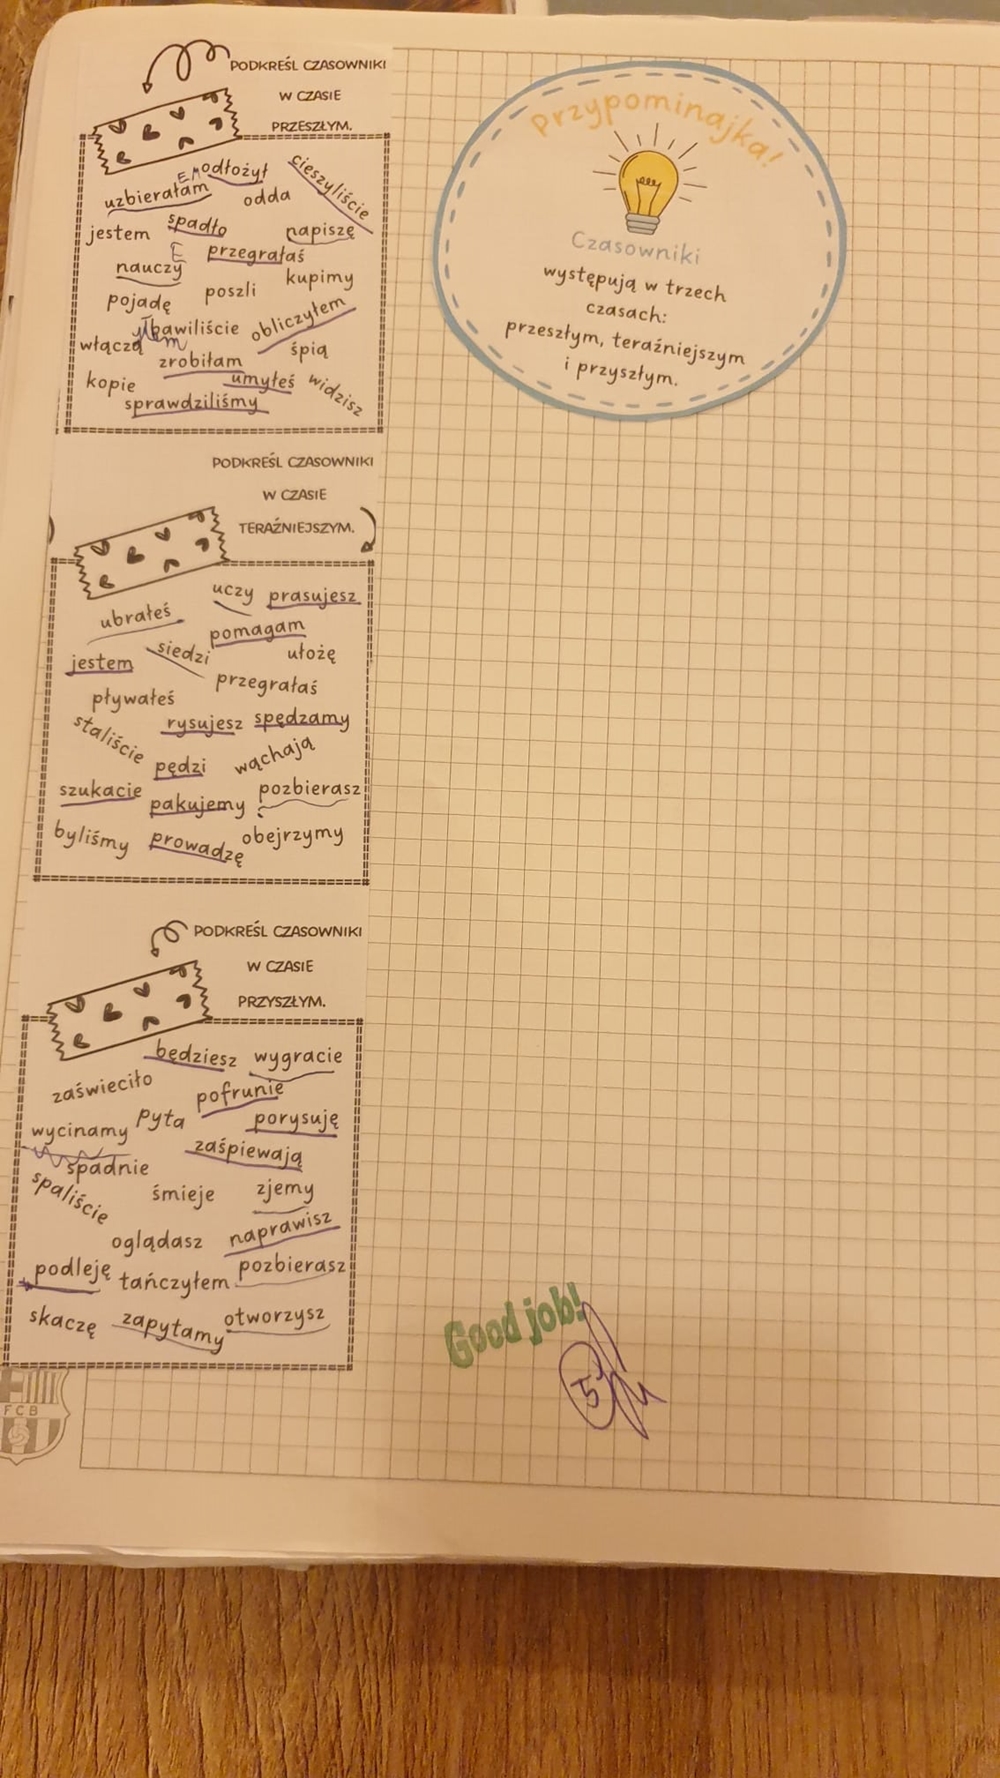 PODKREŚL CZASOWNIKI
W CZASIE
PRZESZŁYM.
odłożył cieszyliście
uzbierałam odda
jestem spadło napiszę
E przegrałaś
nauczy kupimy
pojadę poszli
bawiliście obliczyłem
włączą śpią
zrobiłam
kopie umyłeś widzisz
sprawdziliśmy
PODKREŚL CZASOWNIKI
W CZASIE
TERAŹNIEJSZYM.
uczy prasujesz
ubrałeś
pomagam
jestem siedzi ułożę
przegrałaś
pływałeś
staliście rysujesz spędzamy
pędzi wąchają
szukacie pozbierasz
pakujemy
byliśmy prowadzę obejrzymy
PODKREŚL CZASOWNIKI
W CZASIE
PRZYSZŁYM.
będziesz wygracie
zaświeciło
pofrunie
pyta porysuję
wycinamy
zaśpiewają
spadnie
spaliście śmieje zjemy
oglądasz naprawisz
podleję tańczyłem pozbierasz
skaczę zapytamy otworzysz
FCB
Przypominajka!
Czasowniki
występują w trzech
czasach:
przeszłym, teraźniejszym
i przyszłym.
Good job!
5